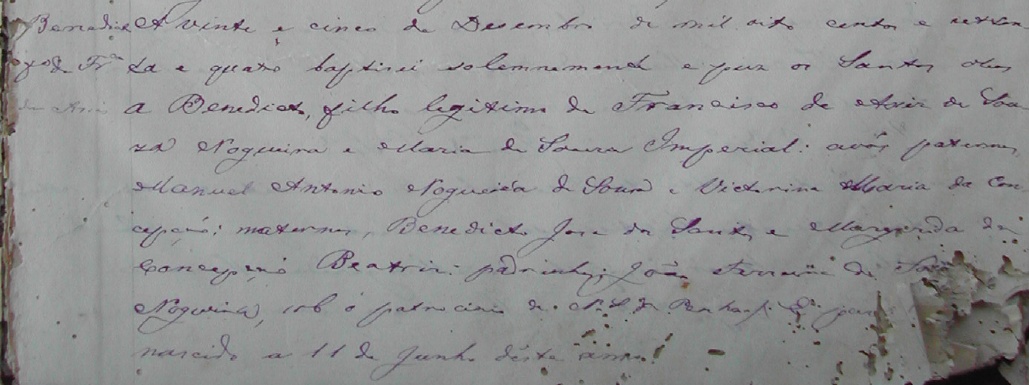 Benedicto A vinte e cinco de Desembro de mil oito centos e setten
fo de Fr.co ta e quatro baptisei solemnemente e puz os Santos oleos
de Assis a Benedicto, filho legitimo de Francisco de Assis de Sou
za Nogueira e Maria de Souza Imperial: avós paternos,
Manuel Antonio Nogueira de Souza e Victorina Maria da Con
ceição; maternos, Benedicto José dos Santos e Margarida da
Conceição Beatriz: padrinhos; João Ferreira de Souza
Nogueira, sob o patrocinio de N. S. da Penha
nascido a 11 de Junho déste anno.